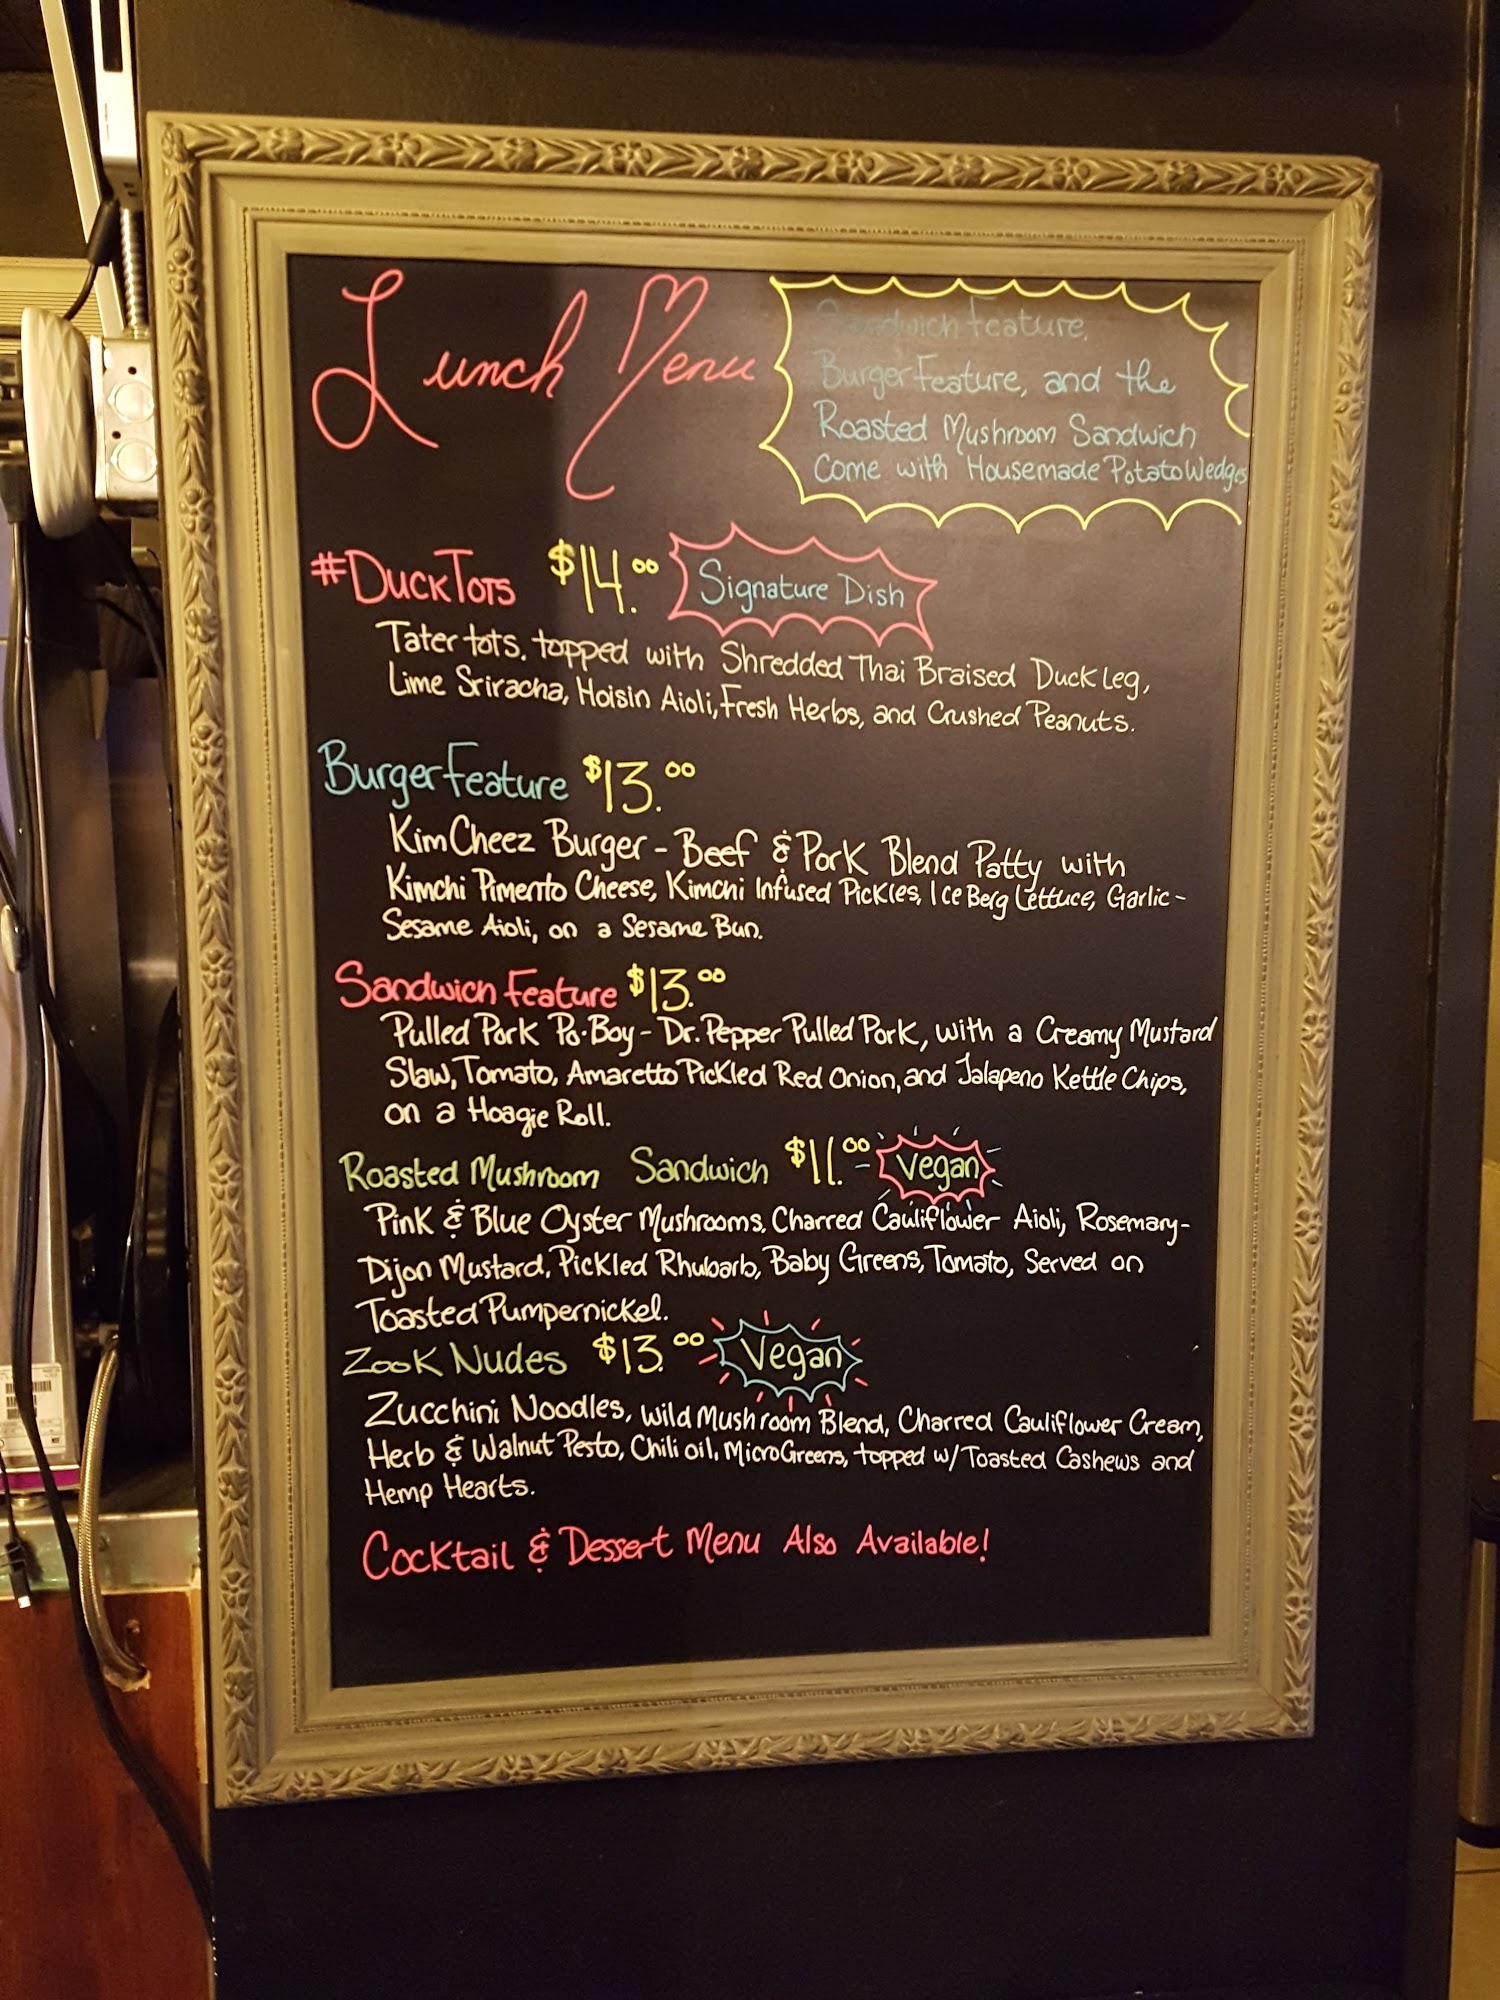 Lunch Menu
Sandwich Feature,
Burger Feature, and the
Roasted Mushroom Sandwich
Come with Housemade Potato Wedges
#DuckTots $14.00 Signature Dish
Tater tots, topped with Shredded Thai Braised Duck Leg,
Lime Sriracha, Hoisin Aioli, Fresh Herbs, and Crushed Peanuts.
Burger Feature $13.00
KimCheez Burger - Beef & Pork Blend Patty with
Kimchi Pimento Cheese, Kimchi Infused Pickles, Ice Berg Lettuce, Garlic-
Sesame Aioli, on a Sesame Bun.
Sandwich Feature $13.00
Pulled Pork Po-Boy - Dr. Pepper Pulled Pork, with a Creamy Mustard
Slaw, Tomato, Amaretto Pickled Red Onion, and Jalapeno Kettle Chips,
on a Hoagie Roll.
Roasted Mushroom Sandwich $11.00 Vegan
Pink & Blue Oyster Mushrooms, Charred Cauliflower Aioli, Rosemary-
Dijon Mustard, Pickled Rhubarb, Baby Greens, Tomato, Served on
Toasted Pumpernickel.
Zook Nudes $13.00 Vegan
Zucchini Noodles, Wild Mushroom Blend, Charred Cauliflower Cream,
Herb & Walnut Pesto, Chili oil, MicroGreens, topped w/ Toasted Cashews and
Hemp Hearts.
Cocktail & Dessert Menu Also Available!